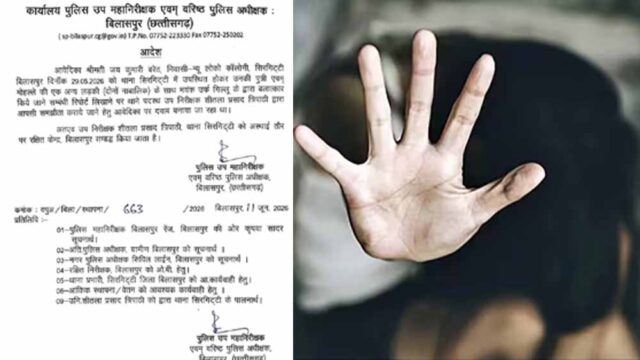 कार्यालय पुलिस उप महानिरीक्षक एवम् वरिष्ठ पुलिस अधीक्षक :
बिलासपुर (छत्तीसगढ़)
( sp-bilaspur.cg@gov.in) T.P.No. 07752-223330 Fax. 07752-250202
आदेश
आवेदिका श्रीमती जय कुमारी बरेत, निवासी-न्यू लोको कॉलोनी, सिरगिट्टी
बिलासपुर दिनॉक 29.05.2026 को थाना सिरगिट्टी में उपस्थित होकर उनकी पुत्री एवम्
मोहल्ले की एक अन्य लड़की (दोनों नाबालिक) के साथ मयंक उर्फ गिल्लू के द्वारा बलात्कार
किये जाने सम्बंधी रिपोर्ट लिखाने पर थाने पदस्थ उप निरीक्षक शीतला प्रसाद त्रिपाठी द्वारा
आपसी समझौता कराये जाने हेतु आवेदिका पर दबाव बनाया जा रहा था।
अतएव उप निरीक्षक शीतला प्रसाद त्रिपाठी, थाना सिरगिट्टी को अस्थाई तौर
पर रक्षित केन्द्र, बिलासपुर सम्बद्ध किया जाता है।
पुलिस उप महानिरीक्षक
एवम् वरिष्ठ पुलिस अधीक्षक,
बिलासपुर, (छत्तीसगढ़)
क्रमांक : वपुअ/बिला/स्थापना/ 663 /2026 बिलासपुर, 11 जून, 2026
प्रतिलिपि :-
01-पुलिस महानिरीक्षक बिलासपुर रेंज, बिलासपुर की ओर कृपया सादर
सूचनार्थ।
02-अति.पुलिस अधीक्षक, ग्रामीण बिलासपुर को सूचनार्थ ।
03-नगर पुलिस अधीक्षक सिविल लाईन, बिलासपुर को सूचनार्थ ।
04-रक्षित निरीक्षक, बिलासपुर को ओ.बी. हेतु।
05-थाना प्रभारी, सिरगिट्टी जिला बिलासपुर को आ.कार्यवाही हेतु।
06-आंकिक स्थापना/वेतन को आवश्यक कार्यवाही हेतु ।
09-उनि.शीतला प्रसाद त्रिपाठी को द्वारा थाना सिरगिट्टी के पालनार्थ।
पुलिस उप महानिरीक्षक
एवम् वरिष्ठ पुलिस अधीक्षक,
बिलासपुर (छत्तीसगढ़)